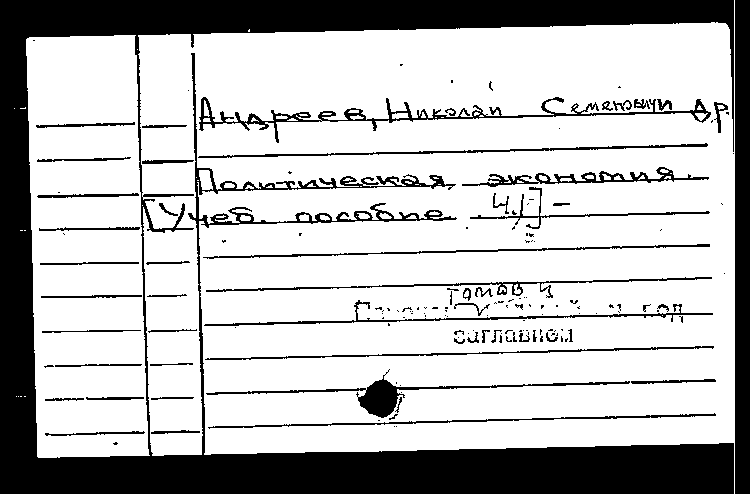 Андреев, Николай Семенович и др.
Политическая экономия.
[Учеб. пособие Ч.1-] –
томов и
под
заглавием